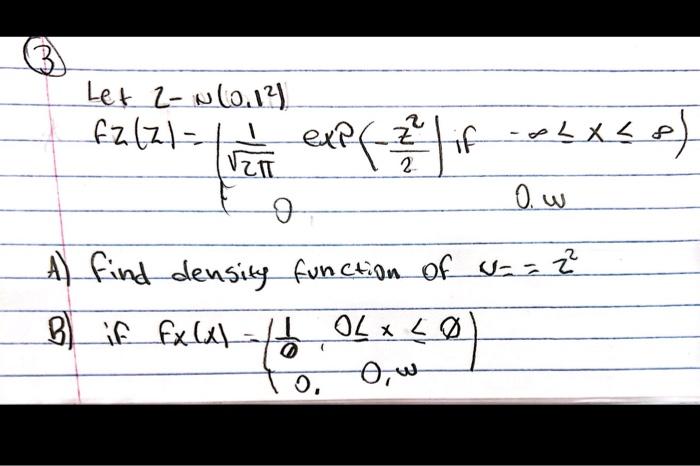 3
Let Z - N(0,1²)
fz(z) = 1/√2π exp(-z²/2) if -∞ ≤ x ≤ ∞
0 0.w
A) find density function of v = = z²
B) if fx(x) = 1/θ, 0 ≤ x ≤ Ø
0, 0,w